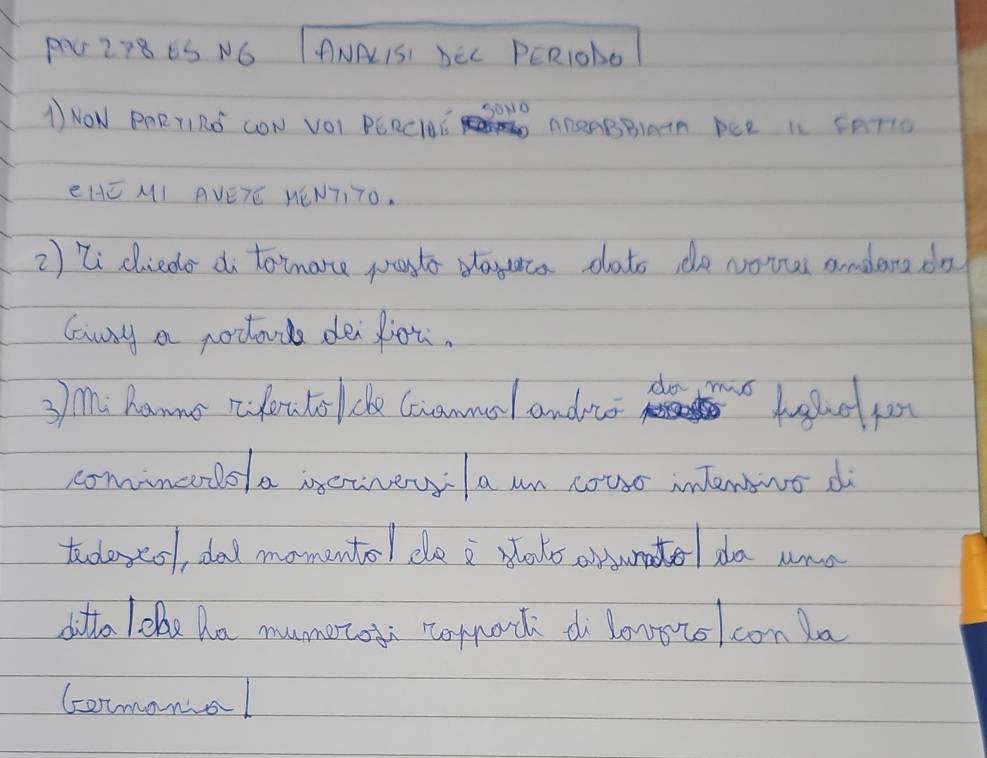 PAG 278 ES N6 ANALISI DEL PERIODO
1) NON PARTIRÒ CON VOI PERCHÈ SONO ARRABBIATA PER IL FATTO
CHE MI AVETE MENTITO.
2) Ti chiedo di tornare presto stasera dato che vorrei andare da
Giusy a portarle dei fiori.
3) Mi hanno riferito | che Gianna | andrà da mio figlio | per
convincerlo | a iscriversi | a un corso intensivo di
tedesco |, dal momento | che è stato assunto | da una
ditta | che ha numerosi rapporti di lavoro | con la
Germania |